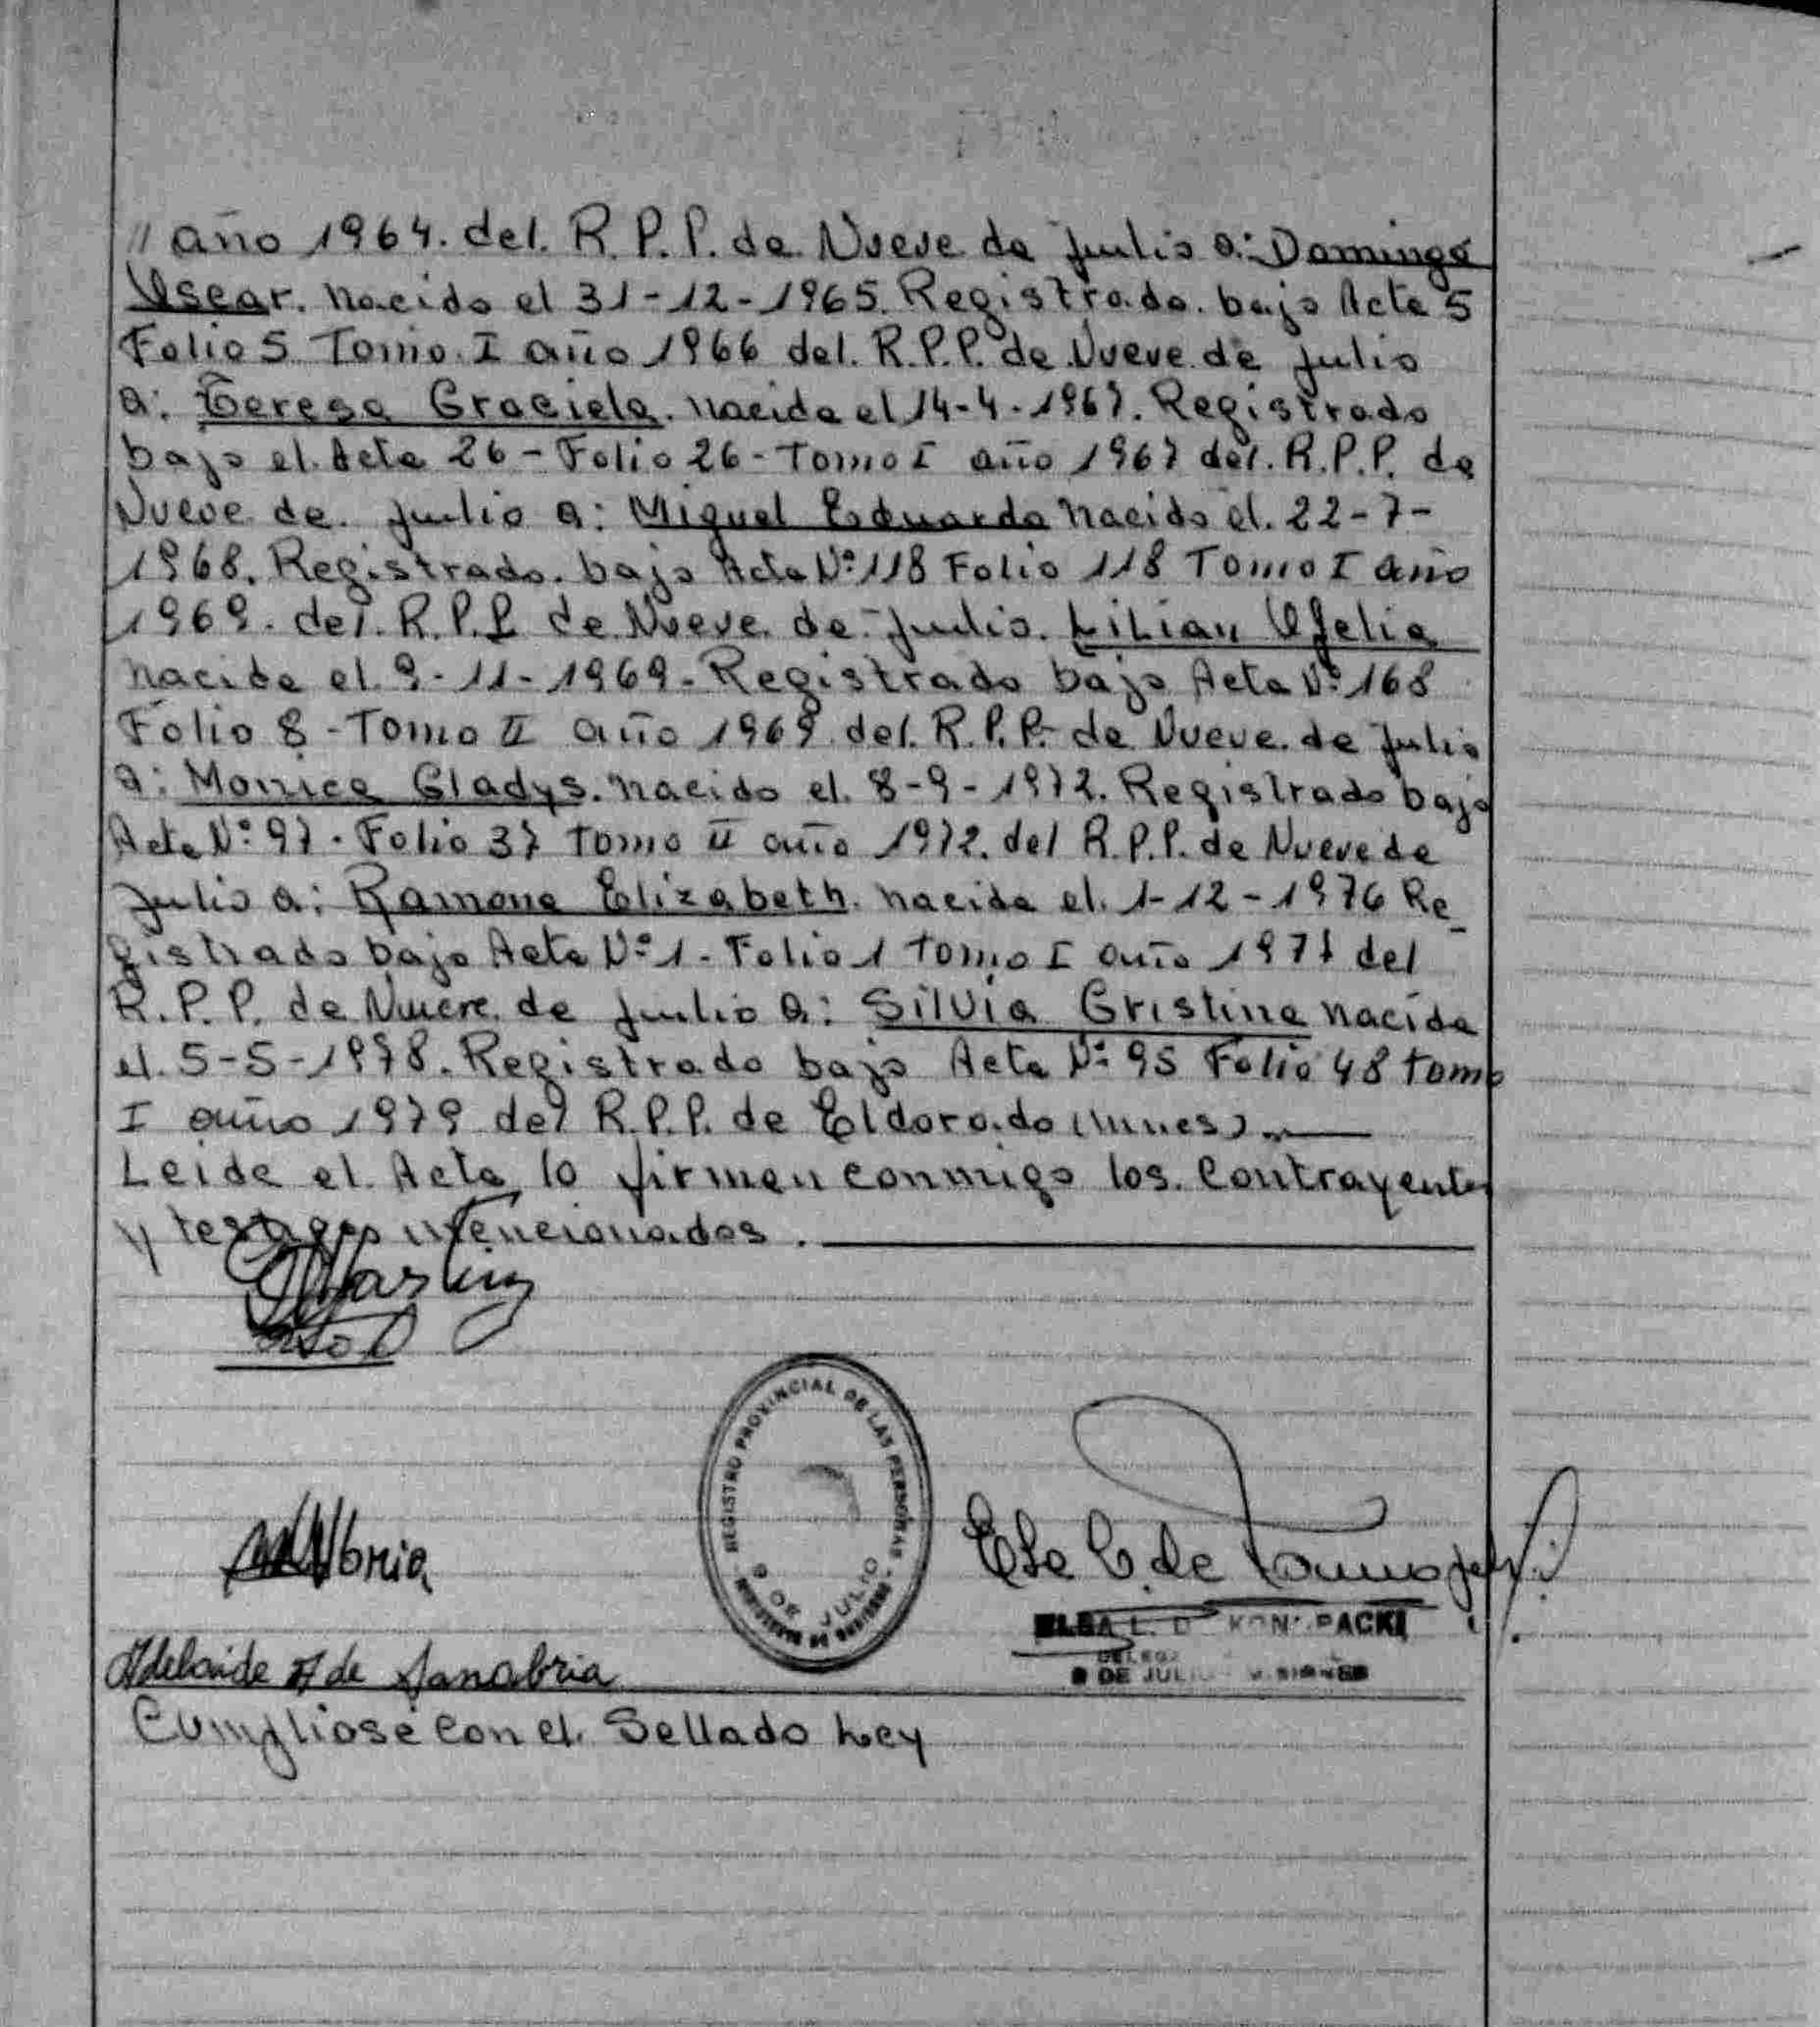 // año 1964. del. R.P.P. de Nueve de Julio a: Domingo
Oscar. nacido el 31-12-1965. Registrado. bajo Acta 5
Folio 5 Tomo. I año 1966 del. R.P.P. de Nueve de Julio
a: Teresa Graciela. nacida el 14-4-1967. Registrado
bajo el. Acta 26 - Folio 26 - Tomo I año 1967 del. R.P.P. de
Nueve de. Julio a: Miguel Eduardo nacido el. 22-7-
1968. Registrado. bajo Acta Nº 118 Folio 118 Tomo I año
1969. del. R.P.P de Nueve. de Julio. Lilian Ofelia
nacida el. 9-11-1969 - Registrado bajo Acta Nº 168
Folio 8 - Tomo II año 1969 del. R.P.P. de Nueve. de Julio
a: Monica Gladys. nacido el. 8-9-1972. Registrado bajo
Acta Nº 97 - Folio 37 Tomo II año 1972. del R.P.P. de Nueve de
Julio a: Ramona Elizabeth. nacida el. 1-12-1976 Re_
gistrado bajo Acta Nº 1 - Folio 1 Tomo I año 1977 del
R.P.P. de Nueve. de Julio a: Silvia Cristina nacida
el. 5-5-1978. Registrado bajo Acta Nº 95 Folio 48 tomo
I año 1979 del R.P.P. de Eldorado
Leida el. Acta, lo firman conmigo los. Contrayentes
y testigos mencionados.
REGISTRO PROVINCIAL DE LAS PERSONAS
9 DE JULIO
MINISTERIO DE GOBIERNO
ELBA L. D KONOPACKI
9 DE JULIO MISIONES
Adelaide de Sanabria
Cumpliose con el. Sellado Ley